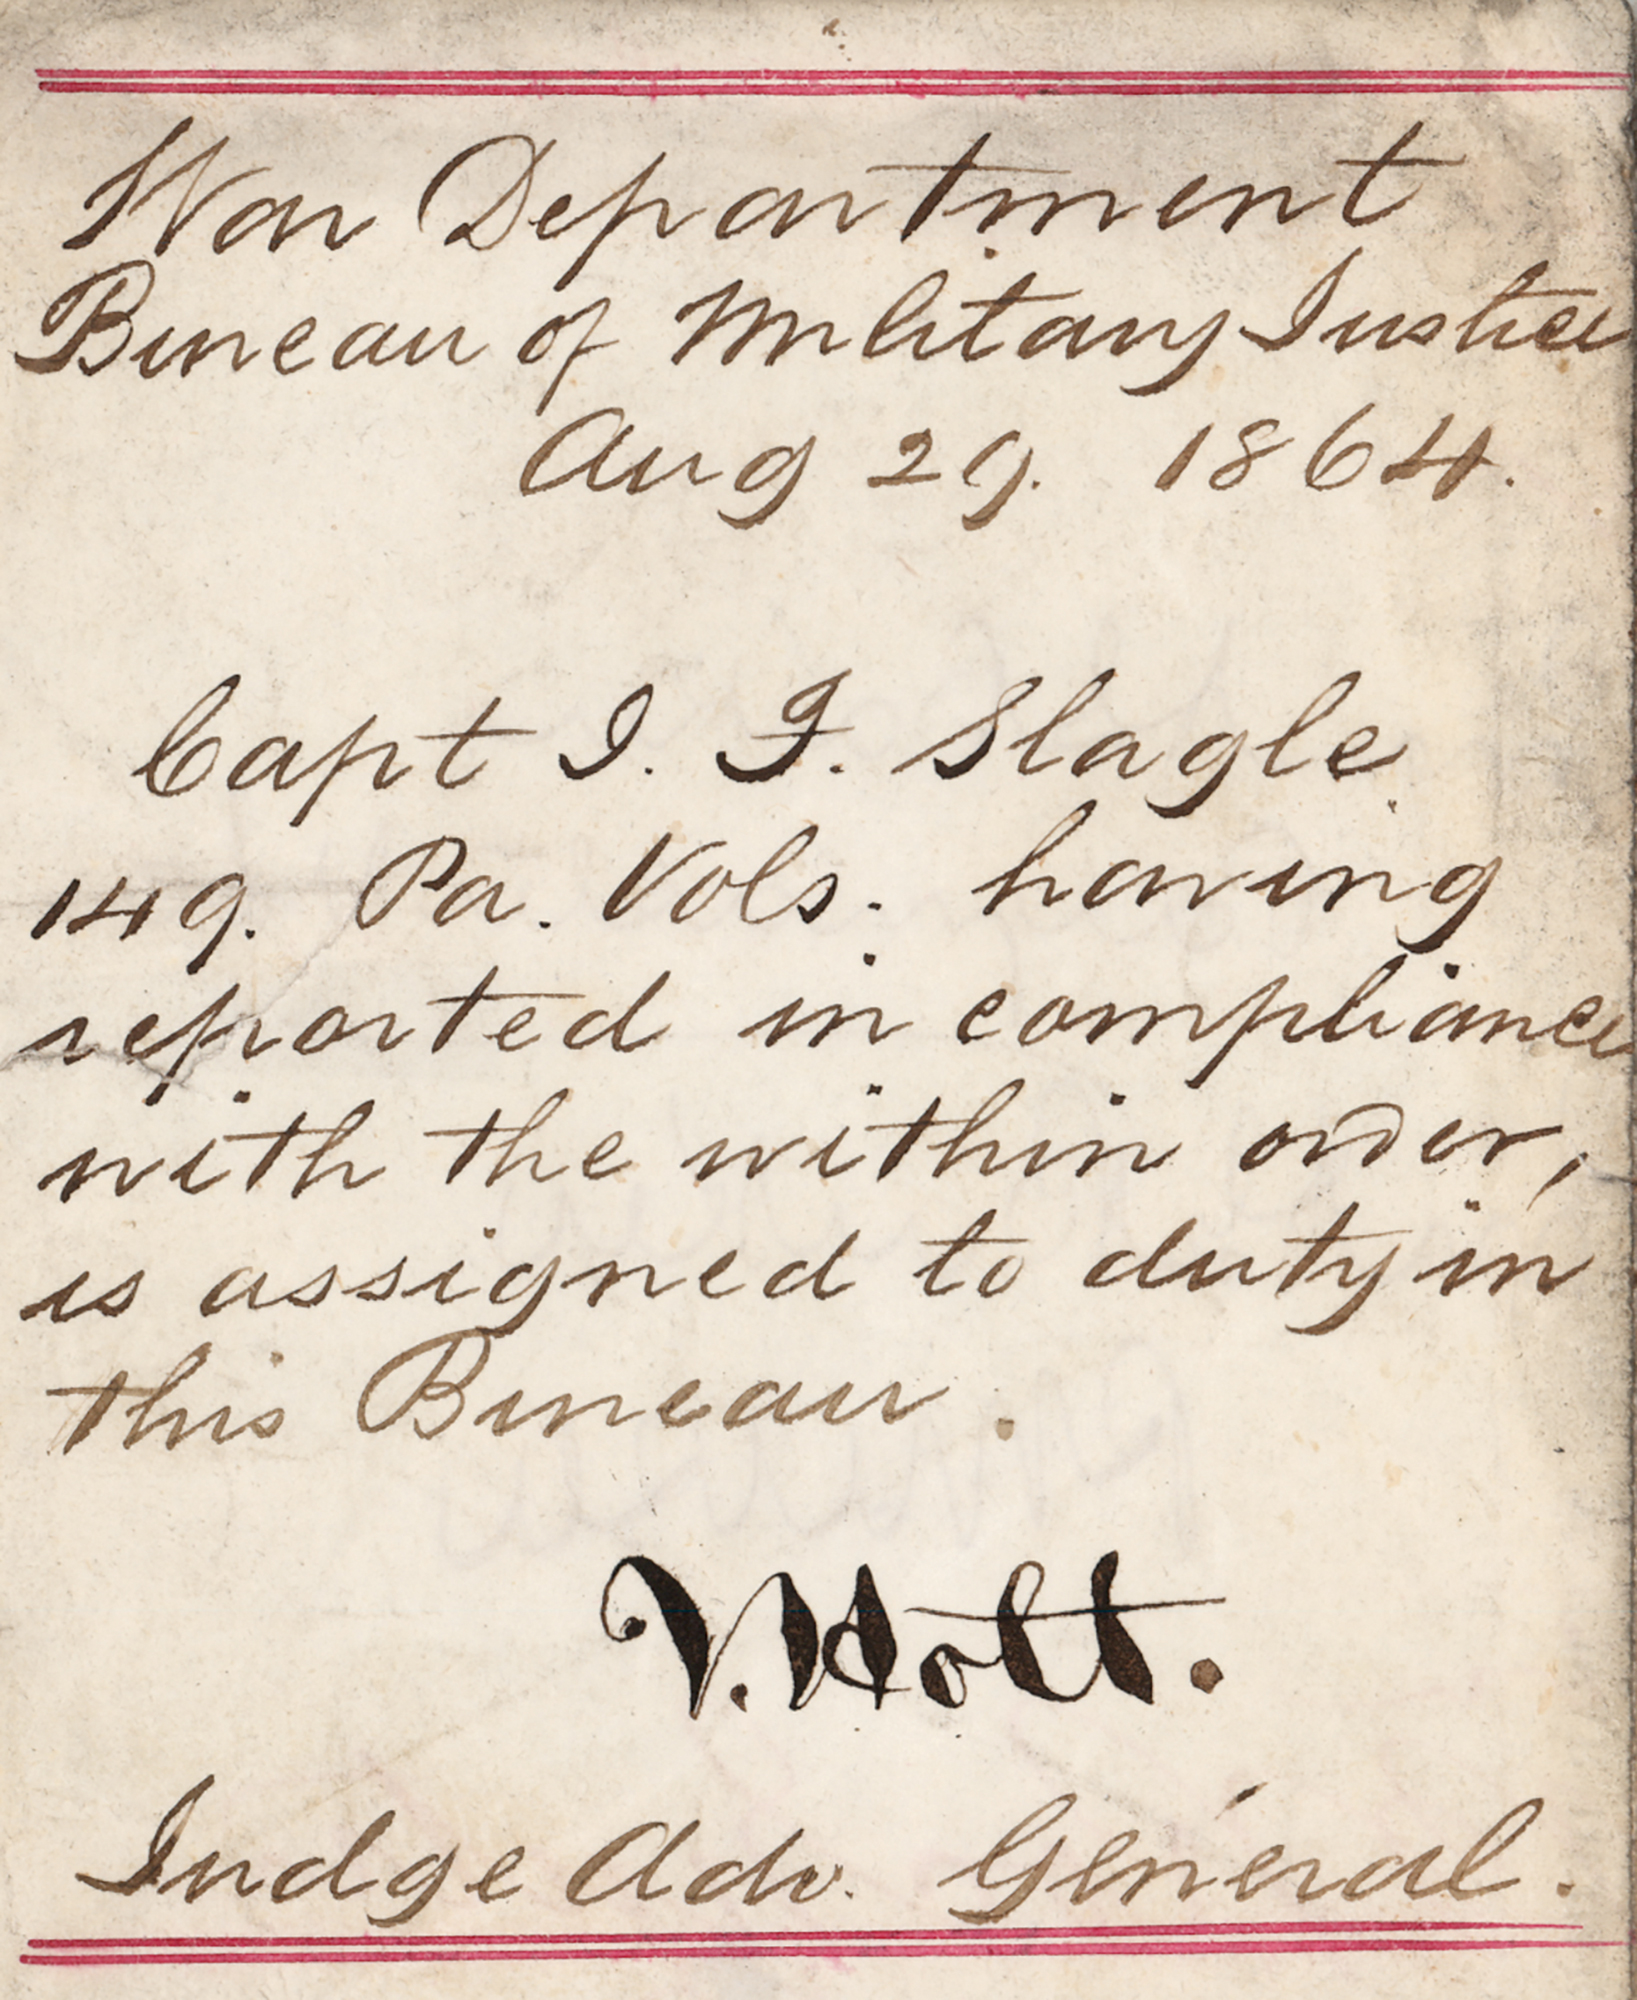 War Department
Bureau of Military Justice
Aug 29. 1864.
Capt J. F. Slagle
149. Pa. Vols. having
reported in compliance
with the within order,
is assigned to duty in
this Bureau.
J. Holt.
Judge Adv. General.